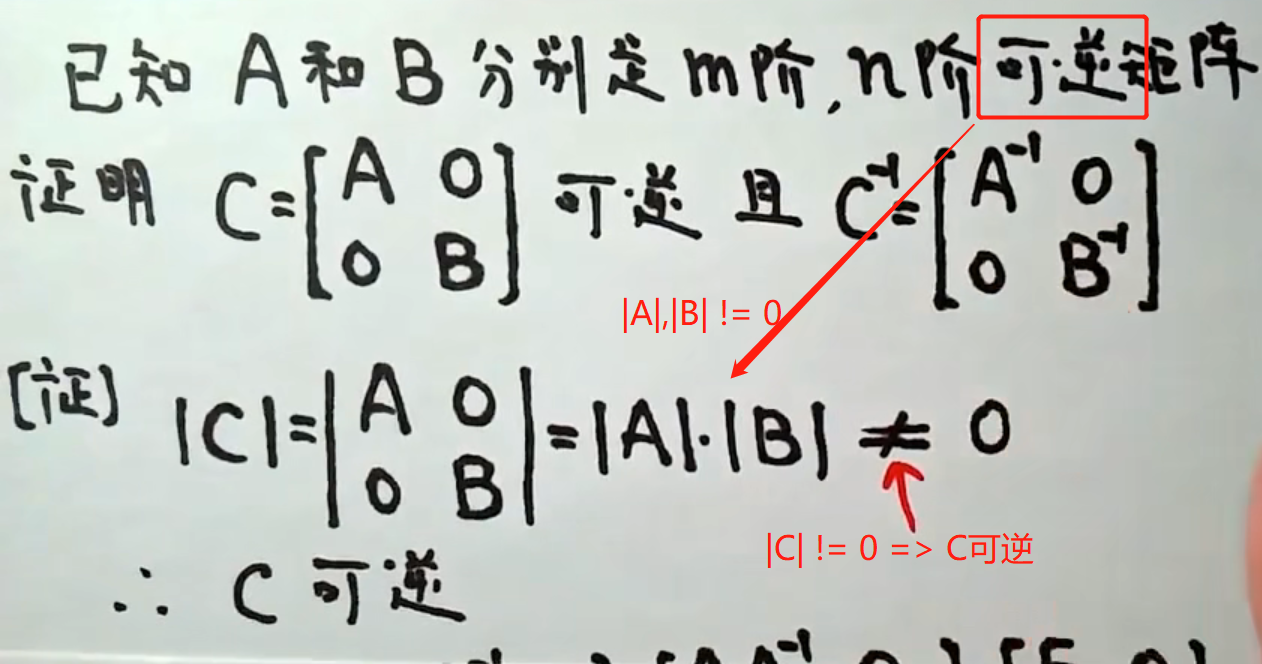 已知 A和B分别是m阶,n阶可逆矩阵
证明 C=[A 0 0 B] 可逆 且 C⁻¹=[A⁻¹ 0 0 B⁻¹]
|A|,|B| != 0
[证] |C|=|A 0 0 B|=|A|·|B| ≠ 0
|C| != 0 => C可逆
∴ C 可逆